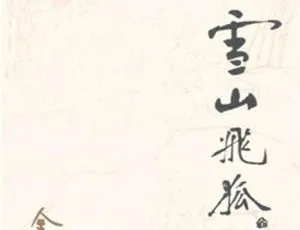 雪山飛狐
金